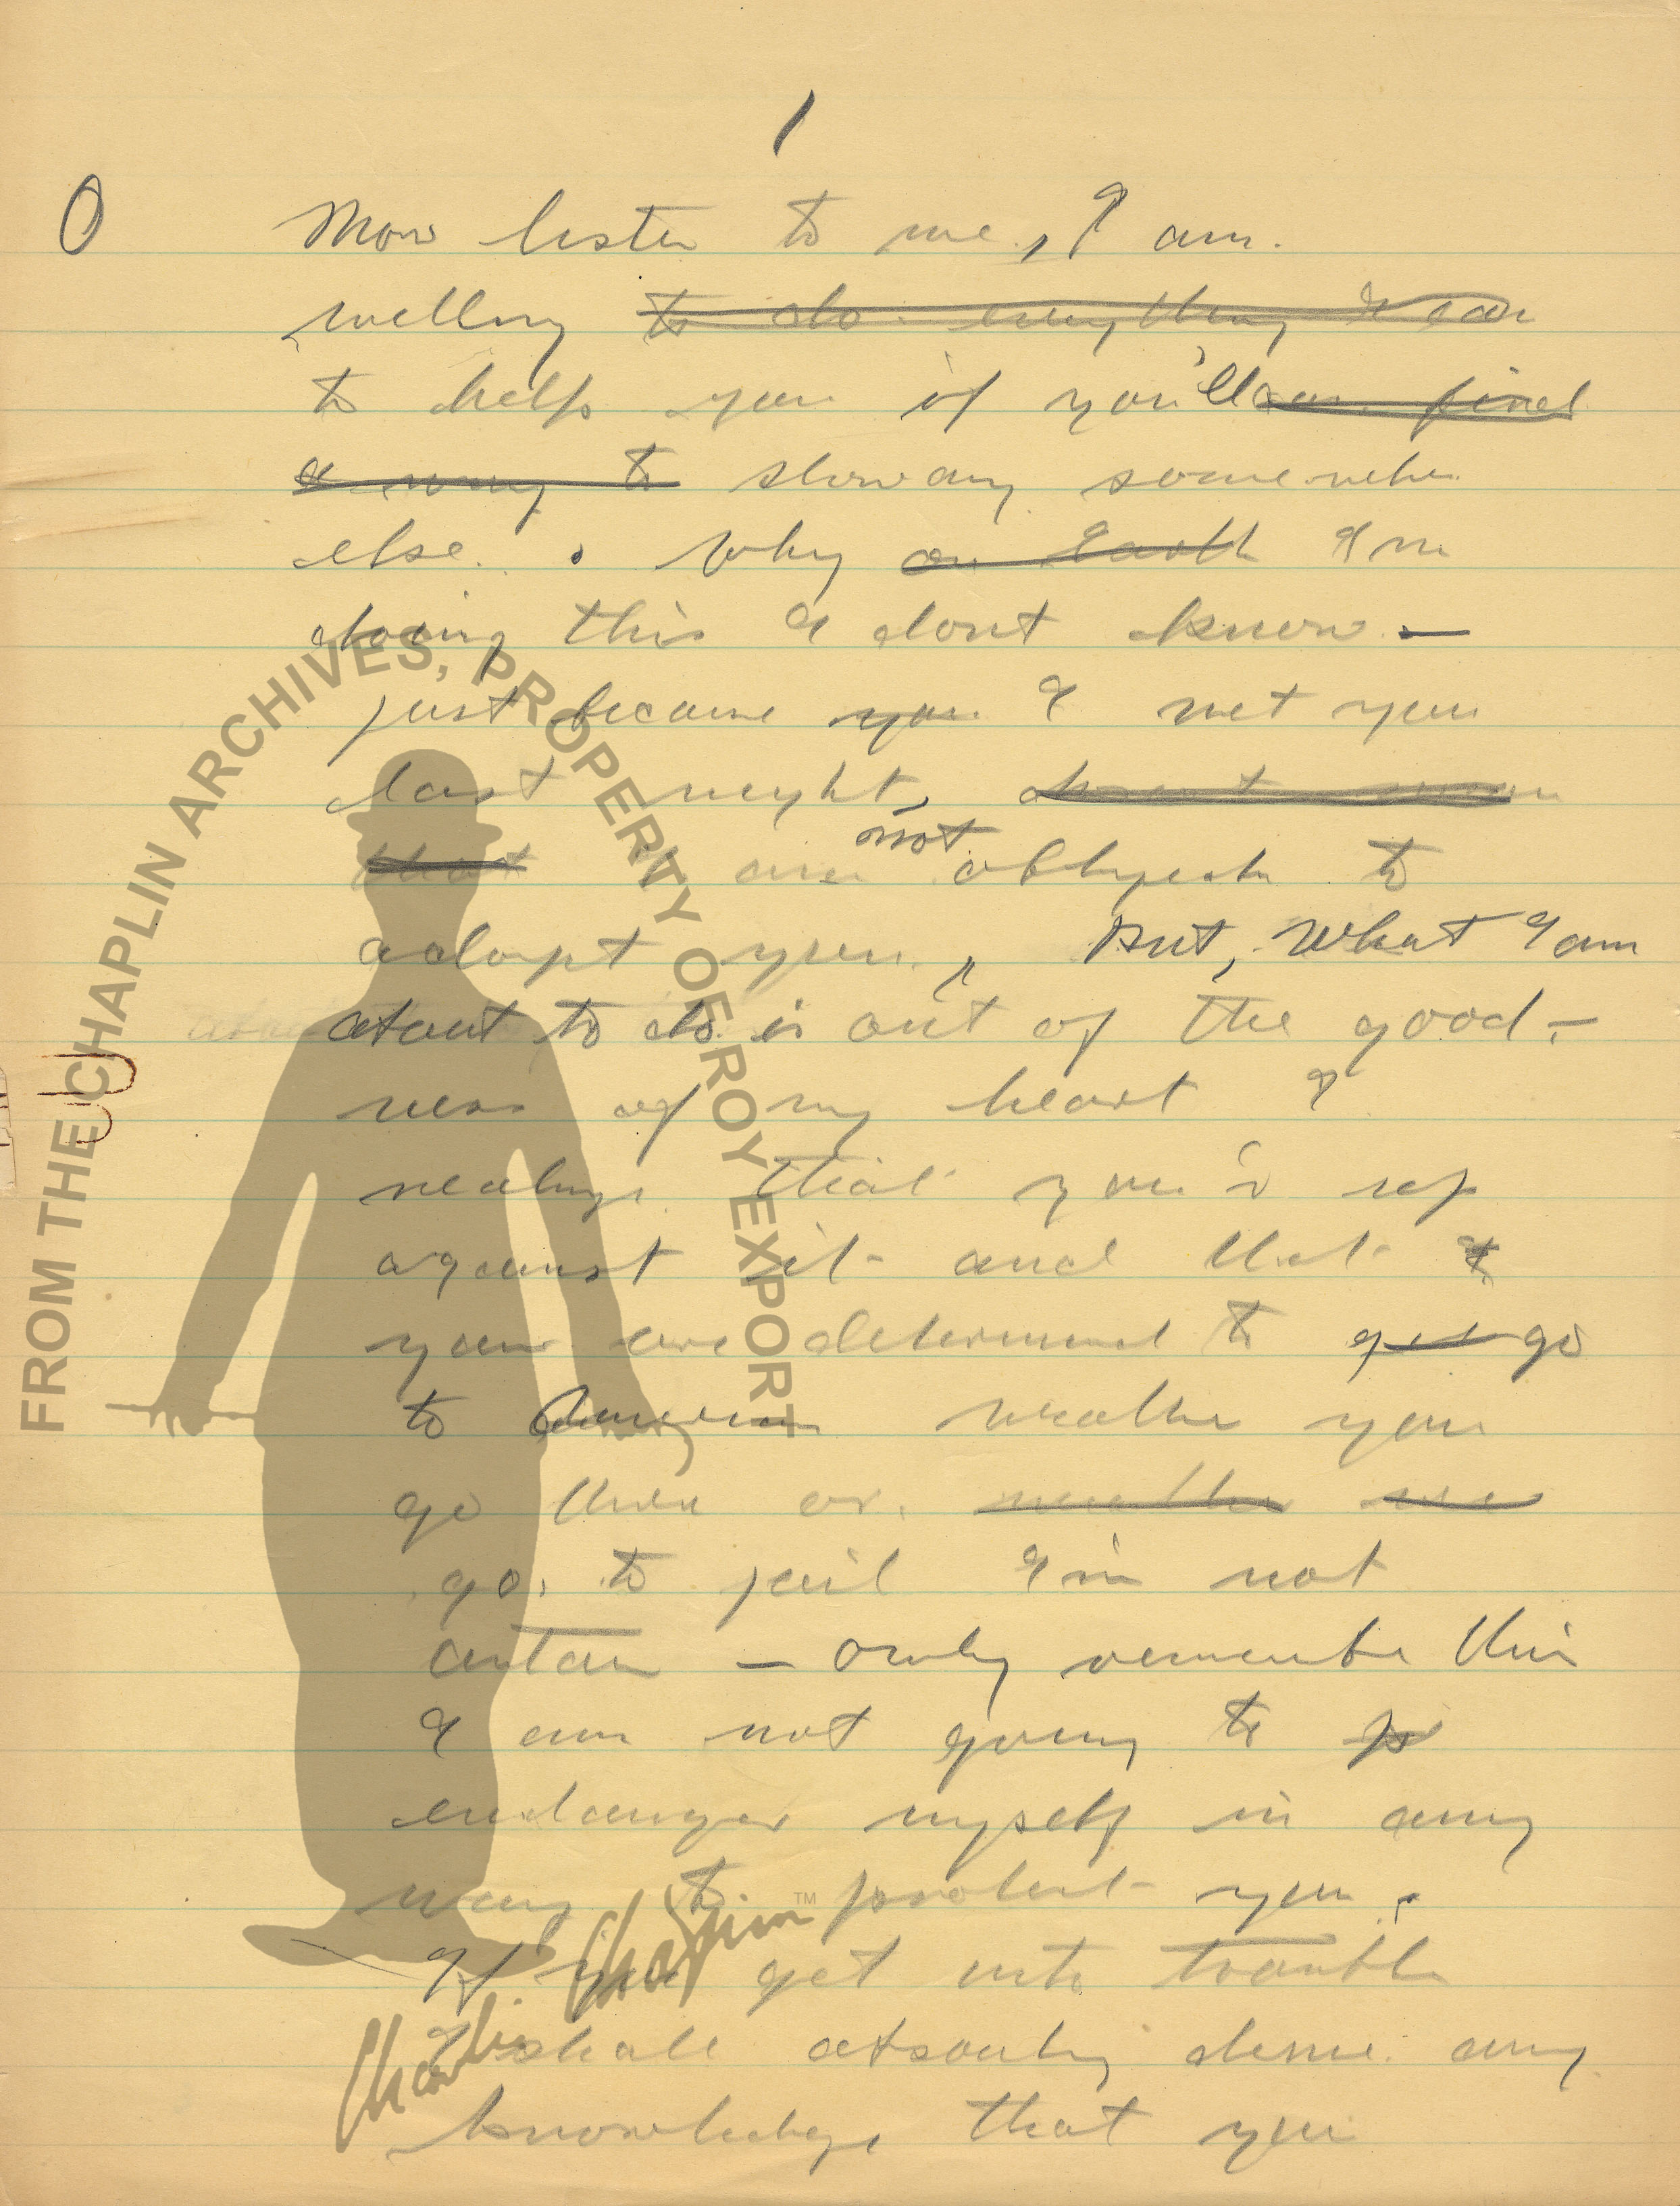 1
O Now listen to me, I am.
willing to do everything I can
to help you if you'll can find
a way to sloway somewhe
else. . Why on Earth I'm
doing this I dont know —
just because you I met you
last night, dosent mean
that I am not obliged to
adopt you, But, What I am
about to do is out of the good-
ness of my heart I
realize that you'r up
against it and that I
you are determined to get go
to America weather you
go there or weather we
go to jail I'm not
certain — only remembe this
I am not going to
endanger myself in any
way to protect you.
If you get into trouble
I shall absoutly denie any
knowledge that you
FROM THE CHAPLIN ARCHIVES, PROPERTY OF ROY EXPORT
Charlie Chaplin ™